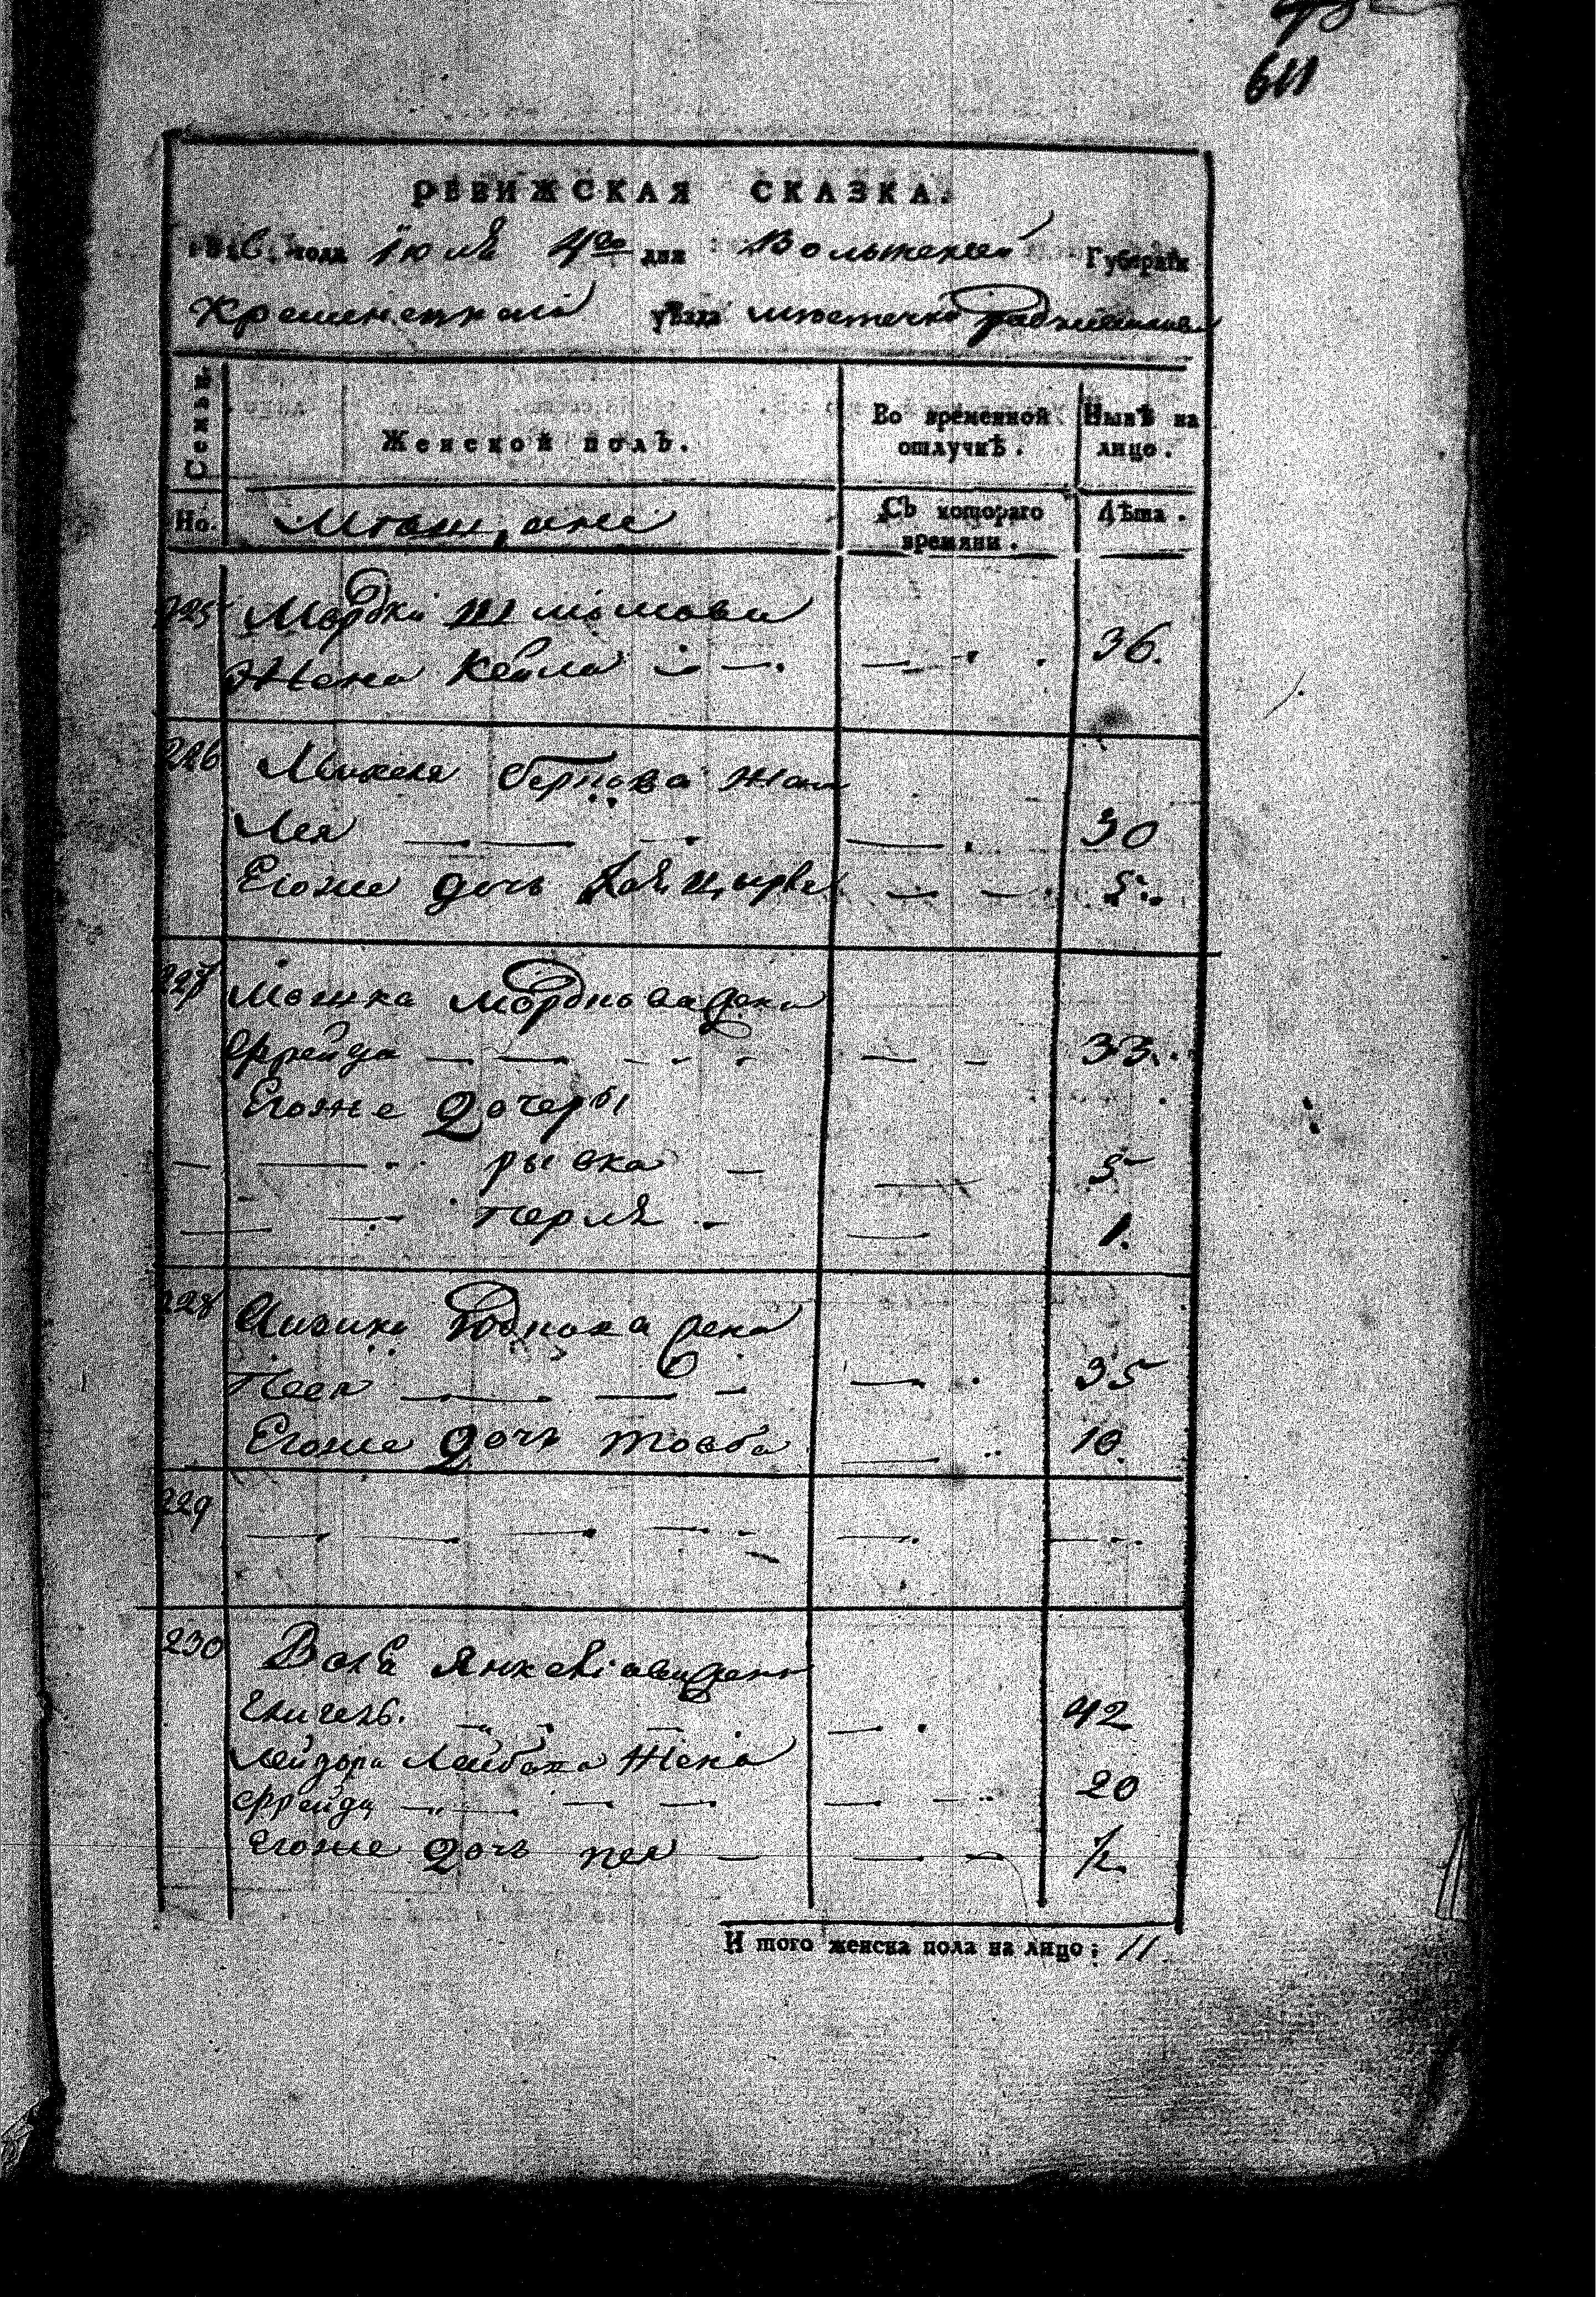 611
РЕВИЖСКАЯ СКАЗКА.
года Июля 4го дня Волынской Губерніи
Кременецкаго уѣзда мѣстечка Радзивилова
Семьи
Женской полъ.
Во временной отлучкѣ.
Нынѣ на лицо.
Но.
Мещане
Съ котораго времяни.
Лѣта.
225 Мордки Шмоилова
Жена Кейла — — 36.
226 Михеля Беркова жена
Лея — — — 30
Егоже дочь Хая Цырля — — 5
227 Мошка Мордкова жена
Фрейда — — — 33
Егоже Дочеры
— — рывка — — 5
— — перля — — 1.
228 жена
Песя — — — 35
Егоже Дочь товба — 10.
229 — — — — — —
230 Волѣ Янкелiовича жена
— — — 42
Лейзора Лейбова Жена
Фрейда — — — 20
Егоже Дочь пея — — — ½.
И того женска пола на лицо: 11